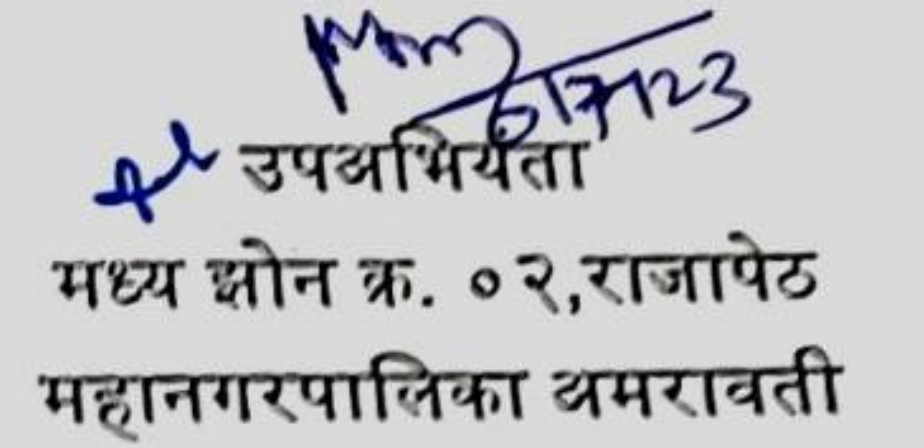 6/7/23
उपअभियंता
मध्य झोन क्र. ०२,राजापेठ
महानगरपालिका अमरावती